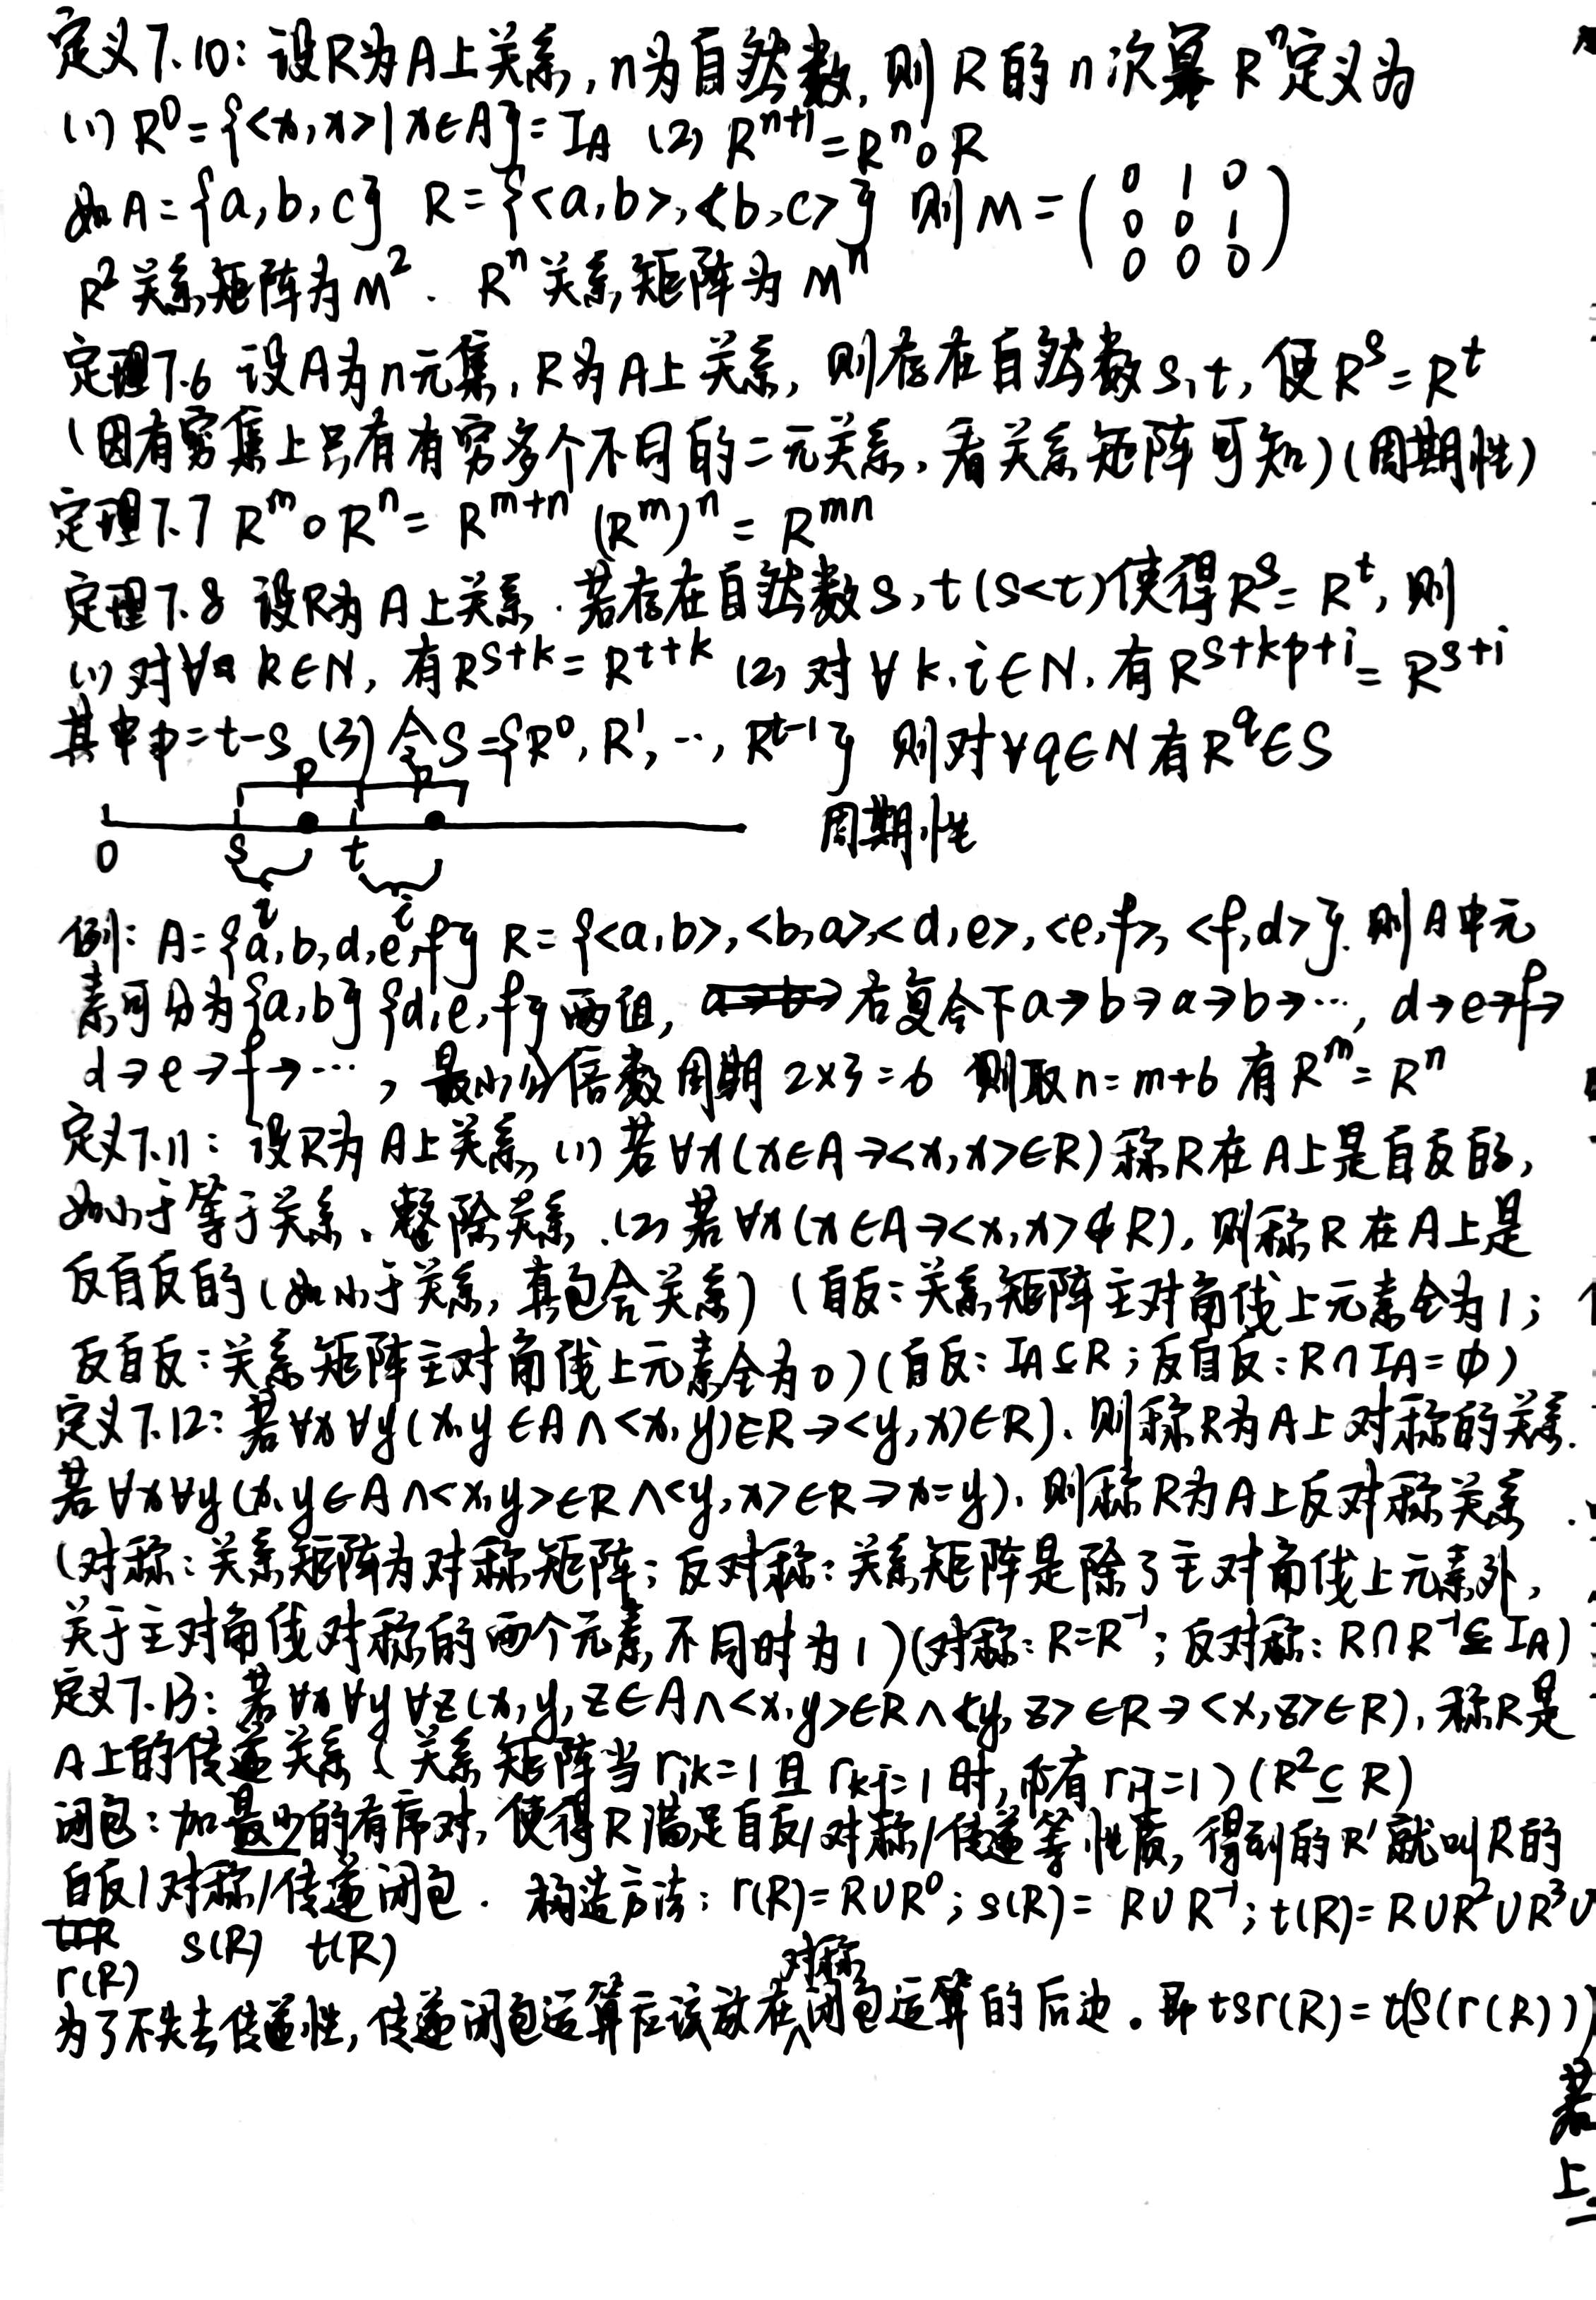 定义7.10: 设R为A上关系,n为自然数,则R的n次幂Rⁿ定义为
(1) R⁰={<x,x>|x∈A}=I_A (2) Rⁿ⁺¹=Rⁿ∘R
如A={a,b,c} R={<a,b>,<b,c>} 则M=(0 1 0
0 0 1
0 0 0)
R²关系矩阵为M². Rⁿ关系矩阵为Mⁿ
定理7.6 设A为n元集,R为A上关系,则存在自然数s,t,使Rˢ=Rᵗ
(因有穷集上只有有穷多个不同的二元关系,看关系矩阵可知)(周期性)
定理7.7 Rᵐ∘Rⁿ=Rᵐ⁺ⁿ (Rᵐ)ⁿ=Rᵐⁿ
定理7.8 设R为A上关系.若存在自然数s,t(s<t)使得Rˢ=Rᵗ,则
(1)对∀k∈N,有Rˢ⁺ᵏ=Rᵗ⁺ᵏ (2)对∀k,i∈N,有Rˢ⁺ᵏᵖ⁺ⁱ=Rˢ⁺ⁱ
其中p=t-s (3)令S={R⁰,R¹,…,Rᵗ⁻¹} 则对∀q∈N有R^q∈S
p p
0 s t 周期性
i i
例: A={a,b,d,e,f} R={<a,b>,<b,a>,<d,e>,<e,f>,<f,d>}.则A中元
素可分为{a,b}{d,e,f}两组, 右复合下a→b→a→b→…, d→e→f→
d→e→f→…, 最小公倍数周期2×3=6 则取n=m+6有Rᵐ=Rⁿ
定义7.11: 设R为A上关系,(1)若∀x(x∈A→<x,x>∈R)称R在A上是自反的,
如小于等于关系、整除关系.(2)若∀x(x∈A→<x,x>∉R),则称R在A上是
反自反的(如小于关系,真包含关系)(自反:关系矩阵主对角线上元素全为1;
反自反:关系矩阵主对角线上元素全为0)(自反:I_A⊆R;反自反:R∩I_A=ϕ)
定义7.12:若∀x∀y(x,y∈A∧<x,y>∈R→<y,x>∈R).则称R为A上对称的关系.
若∀x∀y(x,y∈A∧<x,y>∈R∧<y,x>∈R→x=y).则称R为A上反对称关系.
(对称:关系矩阵为对称矩阵;反对称:关系矩阵是除了主对角线上元素外,
关于主对角线对称的两个元素不同时为1)(对称:R=R⁻¹;反对称:R∩R⁻¹⊆I_A)
定义7.13:若∀x∀y∀z(x,y,z∈A∧<x,y>∈R∧<y,z>∈R→<x,z>∈R),称R是
A上的传递关系(关系矩阵当r_ik=1且r_kj=1时,所有r_ij=1)(R²⊆R)
闭包:加最少的有序对,使得R满足自反/对称/传递等性质,得到的R'就叫R的
自反/对称/传递闭包. 构造方法:r(R)=R∪R⁰;s(R)=R∪R⁻¹;t(R)=R∪R²∪R³∪
r(R) s(R) t(R)
为了不失去传递性,传递闭包运算应该放在对称闭包运算的后边.即tsr(R)=t(s(r(R)))
若
上